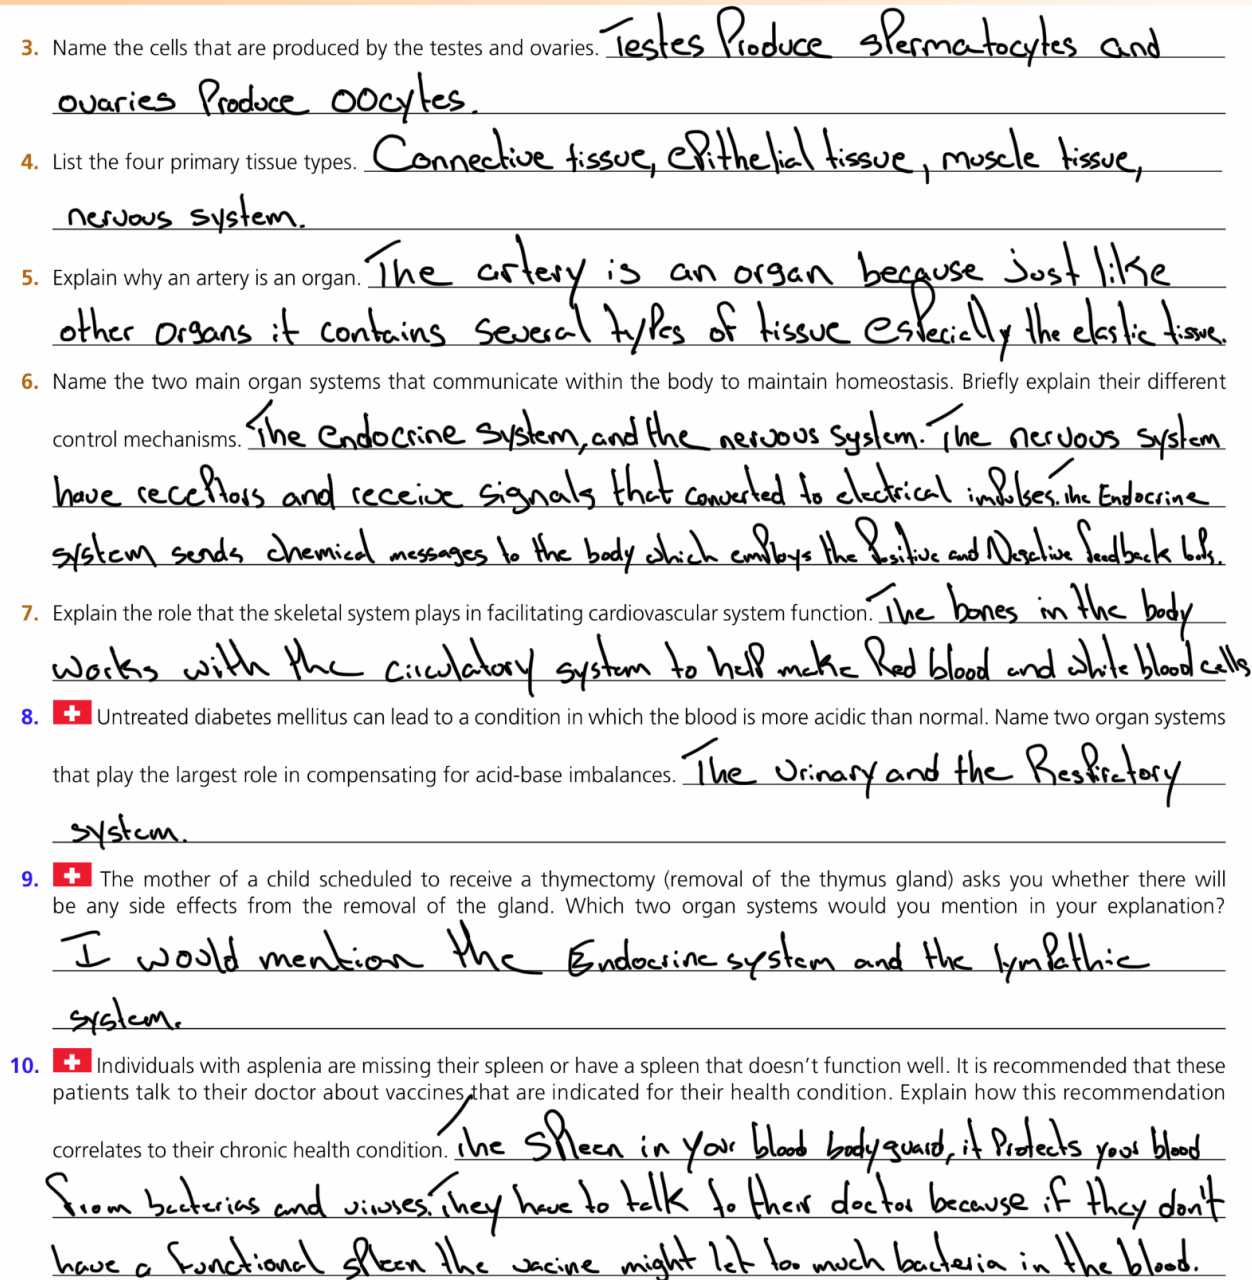 3. Name the cells that are produced by the testes and ovaries. Testes Produce spermatocytes and
ovaries Produce oocytes.
4. List the four primary tissue types. Connective tissue, epithelial tissue, muscle tissue,
nervous system.
5. Explain why an artery is an organ. The artery is an organ because just like
other organs it contains several types of tissue especially the elastic tissue.
6. Name the two main organ systems that communicate within the body to maintain homeostasis. Briefly explain their different
control mechanisms. The Endocrine system, and the nervous system. The nervous system
have receptors and receive signals that converted to electrical impulses. The Endocrine
system sends chemical messages to the body which employs the Positive and Negative feedback
7. Explain the role that the skeletal system plays in facilitating cardiovascular system function. The bones in the body
works with the circulatory system to help make Red blood and white blood cells
8. Untreated diabetes mellitus can lead to a condition in which the blood is more acidic than normal. Name two organ systems
that play the largest role in compensating for acid-base imbalances. The Urinary and the Respiratory
system.
9. The mother of a child scheduled to receive a thymectomy (removal of the thymus gland) asks you whether there will
be any side effects from the removal of the gland. Which two organ systems would you mention in your explanation?
I would mention the Endocrine system and the lympathic
system.
10. Individuals with asplenia are missing their spleen or have a spleen that doesn't function well. It is recommended that these
patients talk to their doctor about vaccines that are indicated for their health condition. Explain how this recommendation
correlates to their chronic health condition. The Spleen in your blood bodyguard, it Protects your blood
from bacterias and viruses. They have to talk to their doctor because if they don't
have a functional spleen the vacine might let too much bacteria in the blood.